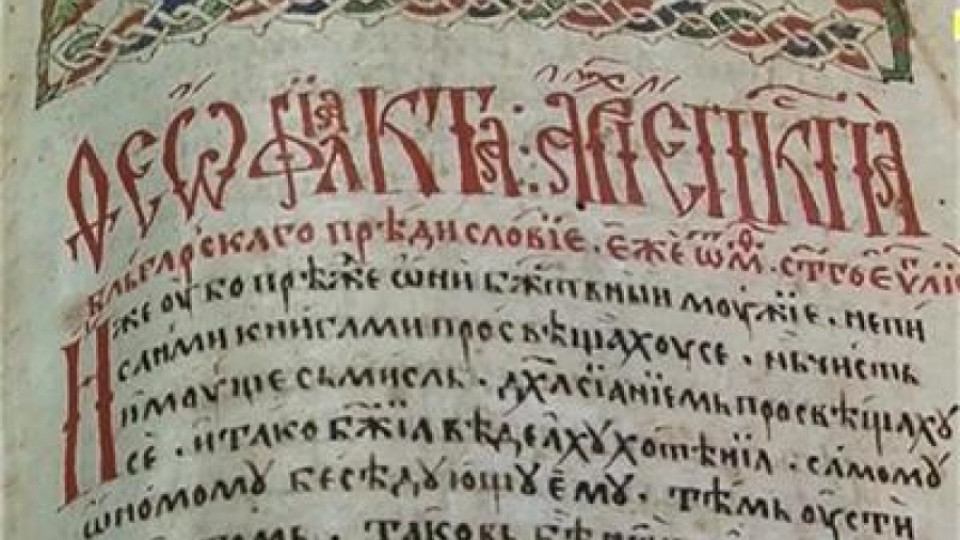 Ѳеѡфилакта: архиепⷭ҇кпїа
бльгарьскаго прѣдисловїе. еже ѿ мⷴ҇. ст҃го еѵⷢ҇лїа
Иже оубо прѣжⷣе ѡни бж҃твныи моужїе. не пи
сдними книгами просвѣщаахоусе. нь чисть
имоуще сьмисль. дх҃а сїанїемь просвѣщаху
се. и тако бж҃їа вѣдеаху хотѣнїа. самому
ѡномому бесѣдующу ему. тѣмь оу сти
таковь